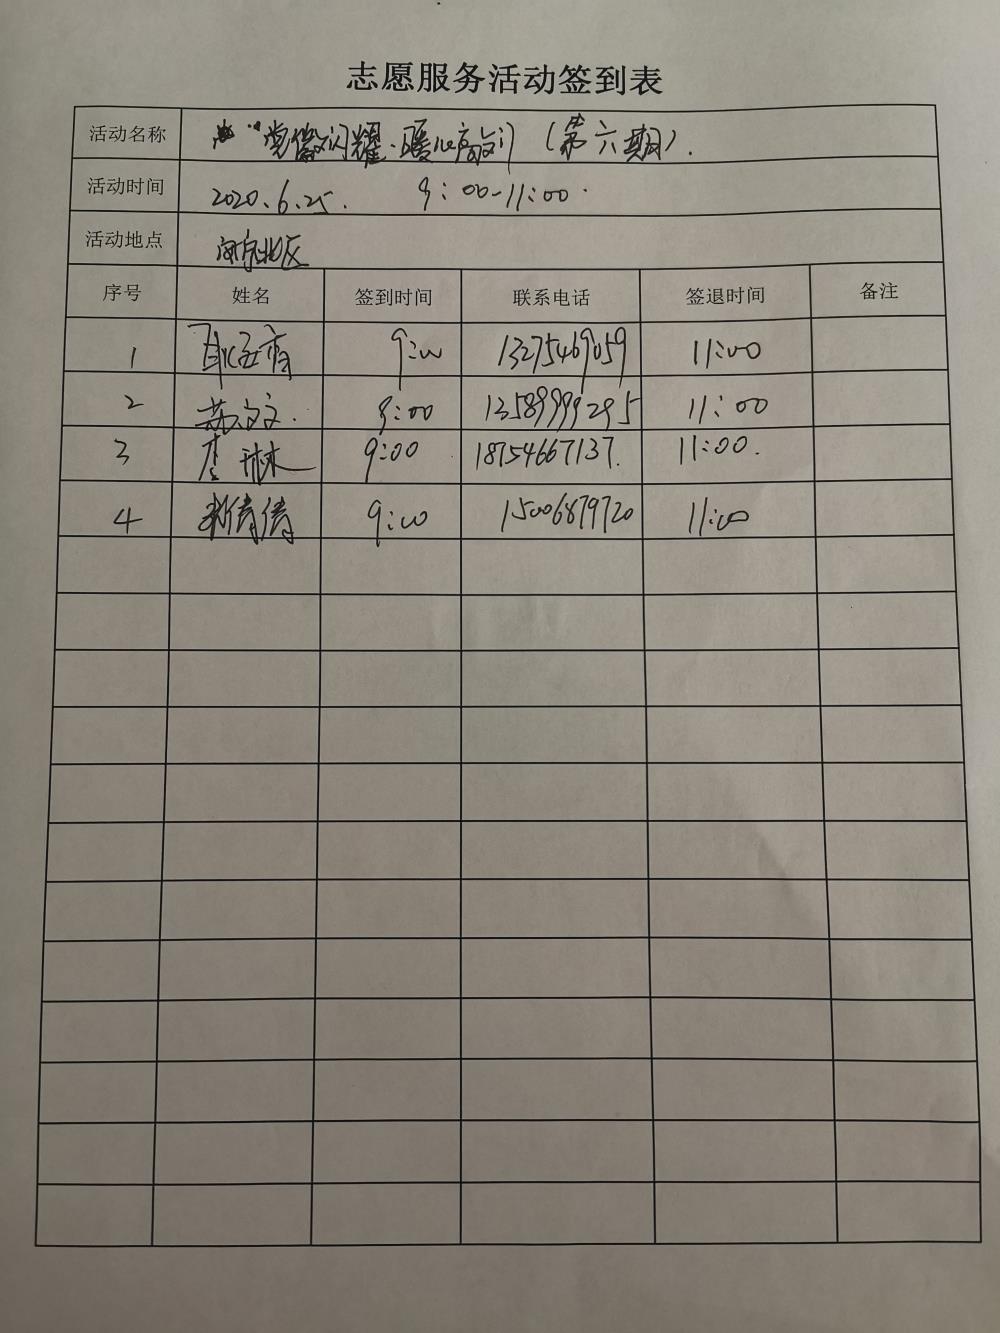 志愿服务活动签到表
活动名称 "党徽闪耀·暖心敲门(第六期).
活动时间 2020.6.25. 9:00-11:00.
活动地点
序号 姓名 签到时间 联系电话 签退时间 备注
1 9:00 13275469059 11:00
2 苏文文. 9:00 13589999295 11:00
3 9:00 18754667137. 11:00.
4 倩倩 9:00 15006879720 11:00